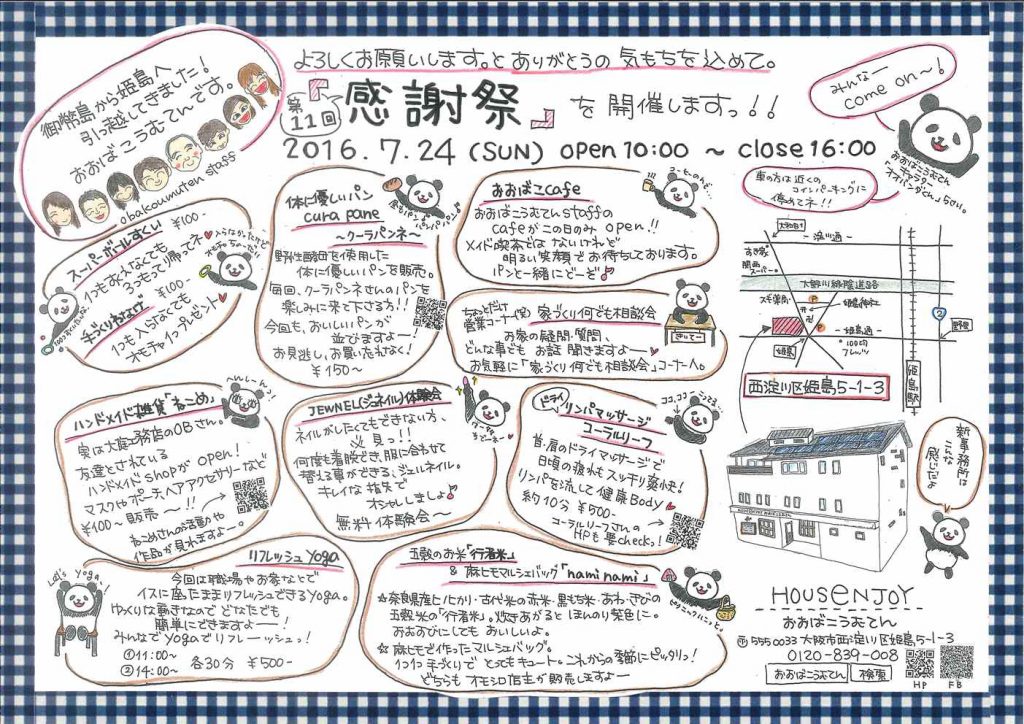 よろしくお願いします。と ありがとうの 気もちを込めて。
第11回
『感謝祭』を開催しますっ!!
2016.7.24 (SUN) open 10:00 ~ close 16:00
御幣島から姫島へ
引っ越してきました!
おおばこうむてんです。
obakoumuten staff
みんなー
come on~!
おおばこうむてん
キャラクター
車の方は近くの
コインパーキングに
停めてネ!!
スーパーボールすくい ¥100-
いつもすくえなくても
3つもって帰ってネ
手づくりわなげ ¥100-
1つも入らなくても
オモチャ1つプレゼント♥
体に優しいパン
cura pane
~クーラパンネ~
野生酵母を使用した
体に優しいパンを販売。
毎回、クーラパンネさんのパンを
楽しみに来て下さる方!!
今回も、おいしいパンが
並びますよー!
お見逃し、お買いたおしなく!
¥150~
おおばこcafe
おおばこうむてんstaffの
cafeがこの日のみ open!!
メイド喫茶では ないけれど
明るい笑顔でお待ちしております。
パンと一緒にどーぞ♪
ちょっとだけ
営業コーナー(笑)
家づくり何でも相談会
お家の疑問・質問、
どんな事でも お話 聞きますよー♥
お気軽に「家づくり何でも相談会」コーナーへ。
淀川通
大野川緑陰道路
姫島神社
姫島通
姫島駅
2
西淀川区姫島5-1-3
ハンドメイド雑貨「ねこめ」
実は大庭工務店のOBさん。
友達とされている
ハンドメイドshopが open!
マスクやポーチ、ヘアアクセサリーなど
¥100~ 販売~!!
ねこめさんの活動や
作品が見れますよー。
JEWNEL(ジュネイル)体験会
ネイルがしたくてもできない方、
必見っ!!
何度も着脱でき、服に合わせて
替える事ができる、ジュエルネイル。
キレイな指先で
オシャレしましょ♪
無料体験会~
ドライ
リンパマッサージ
コーラルリーフ
ココ ココ
首、肩のドライマッサージで
日頃の疲れもスッキリ落とす!
リンパを流して健康Body♥
約10分 ¥500-
コーラルリーフさんの
HPも要check!
新事務所は
こんな
感じだよ
Let's Yoga!
リフレッシュ Yoga
今回は職場やお家などで
イスに座ったままリフレッシュできるYoga。
ゆっくりな動きなので どなたでも
簡単にできますよーー!
みんなでYogaでリフレーッシュっ!
①11:00~
②14:00~
各30分 ¥500-
五穀のお米「行者米」
& 麻ヒモマルシェバッグ「nami nami」
☆奈良県産ヒノヒカリ・古代米の赤米・黒もち米・あわ・きびの
五穀米の「行者米」。炊きあがると ほんのり紫色に。
おむすびにしても おいしいよ。
☆麻ヒモで作ったマルシェバッグ。
1つ1つ手づくりで とってもキュート。これからの季節にピッタリっ!
どちらも オモシロ店主が販売しますよー
HOUSENJOY
おおばこうむてん
〒555-0033 大阪市西淀川区姫島5-1-3
0120-839-008
おおばこうむてん 検索
HP FB